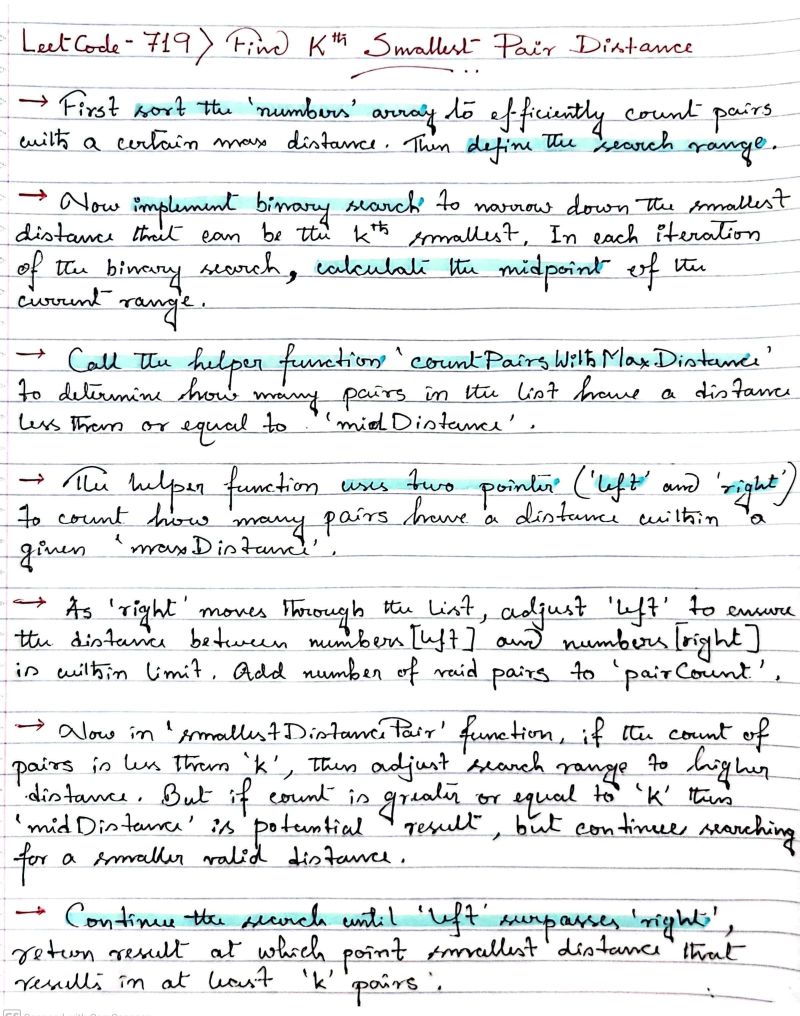 LeetCode - 719 > Find Kth Smallest Pair Distance
→ First sort the 'numbers' array to efficiently count pairs
with a certain max distance. Then define the search range.
→ Now implement binary search to narrow down the smallest
distance that can be the kth smallest. In each iteration
of the binary search, calculate the midpoint of the
current range.
→ Call the helper function 'countPairsWithMaxDistance'
to determine how many pairs in the list have a distance
less than or equal to 'midDistance'.
→ The helper function uses two pointer ('left' and 'right')
to count how many pairs have a distance within a
given 'maxDistance'.
→ As 'right' moves through the list, adjust 'left' to ensure
the distance between numbers[left] and numbers[right]
is within limit. Add number of vaid pairs to 'pairCount'.
→ Now in 'smallestDistancePair' function, if the count of
pairs is less than 'k', then adjust search range to higher
distance. But if count is greater or equal to 'k' then
'midDistance' is potential result, but continue searching
for a smaller valid distance.
→ Continue the search until 'left' surpasses 'right',
return result at which point smallest distance that
results in at least 'k' pairs.